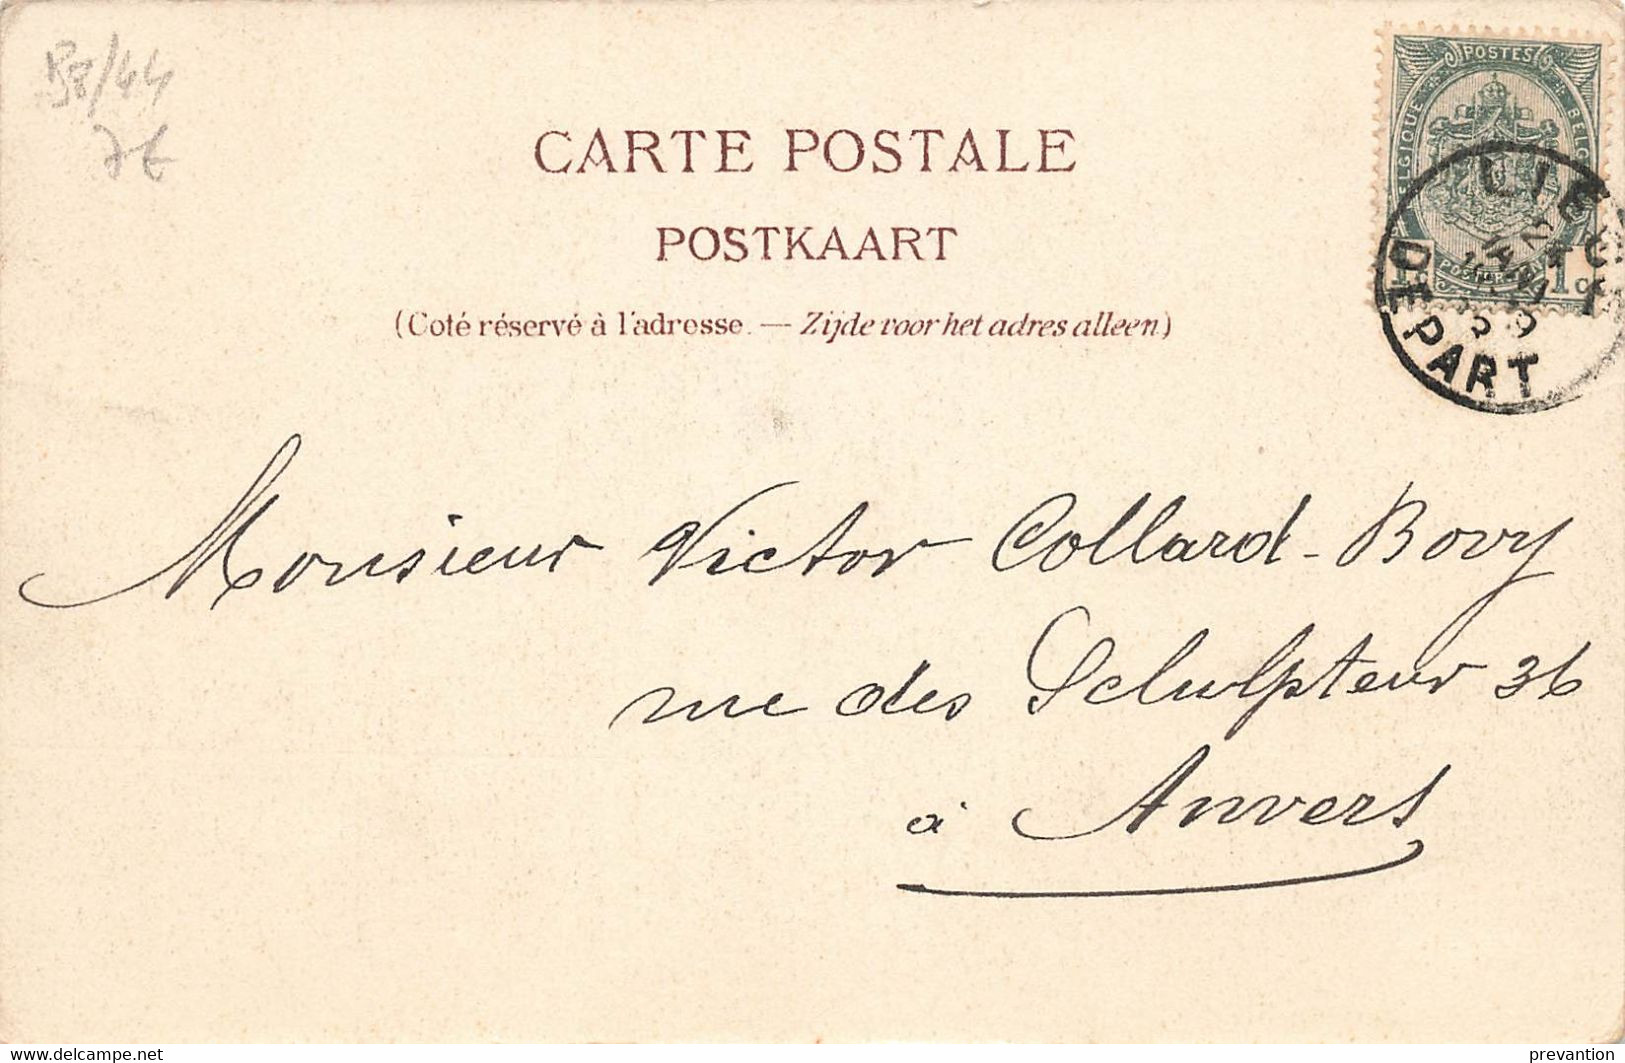 58/44
7€
POSTES
BELGIQUE
CARTE POSTALE
POSTKAART
(Coté réservé à l'adresse. — Zijde voor het adres alleen)
DEPART
Monsieur Victor Collard-Bovy
rue des Sclulpteur 36
à Anvers
www.delcampe.net
prevantion